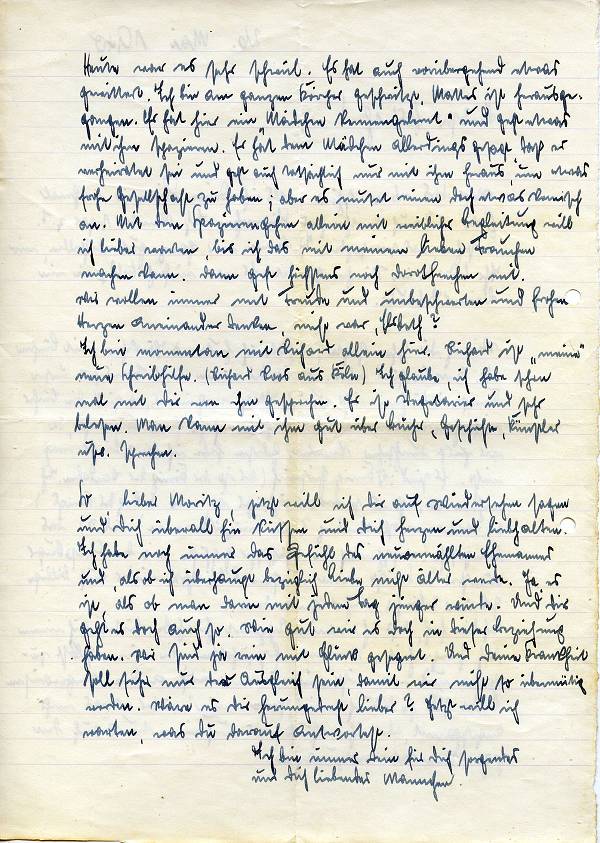 Heute war es sehr schwül. Es hat auch vorübergehend etwas
gewittert. Ich bin am ganzen Körper geschwitzt. Mattes ist herausge-
gangen. Er hat hier ein „Mädchen kennengelernt“, und geht etwas
mit ihm spazieren. Er hat dem Mädchen allerdings gesagt daß er
verheiratet sei und geht auch tatsächlich nur mit ihm heraus, um etwas
frohe Gesellschaft zu haben; aber es mutet einen doch etwas komisch
an. Mit dem Spazierengehen allein mit weiblicher Begleitung will
ich lieber warten, bis ich das mit meinem lieben Frauchen
machen kann. Dann geht höchstens noch Dorotheechen mit.
Wir wollen immer mit Freude und unbeschwerten und frohen
Herzen aneinander denken, nicht wahr, Elsbeth?
Ich bin momentan mit Richard allein hier. Richard ist „meine“
neue Schreibhilfe. (Richard aus Köln) Ich glaube, ich habe schon
mal mit Dir von ihm gesprochen. Er ist Vegetarier und sehr
belesen. Man kann mit ihm gut über Bücher, Geschichte, Künstler
usw. sprechen.
So lieber Moritz, jetzt will ich dir auf Wiedersehen sagen
und dich überall hin küssen und dich herzen und liebhalten.
Ich habe noch immer das Gefühl des neuvermählten Ehemannes
und, als ob ich überhaupt bezüglich Liebe nicht älter werde. Ja es
ist, als ob man dann mit jedem Tag jünger würde. Und dir
geht es doch auch so. Wie gut wir es doch in dieser Beziehung
haben. Wir sind ja rein mit Glück gesegnet. Und deine Krankheit
soll sicher nur der Ausgleich sein, damit wir nicht so übermütig
werden. Wäre es dir herumgedreht lieber? Jetzt will ich
warten, was du darauf antwortest.
Ich bin immer dein für dich sorgendes
und dich liebendes Mannchen.